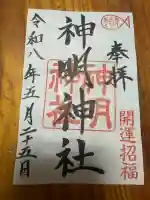 奉拝
開運招福
神明神社
神明
神社
令和八年五月二十五日